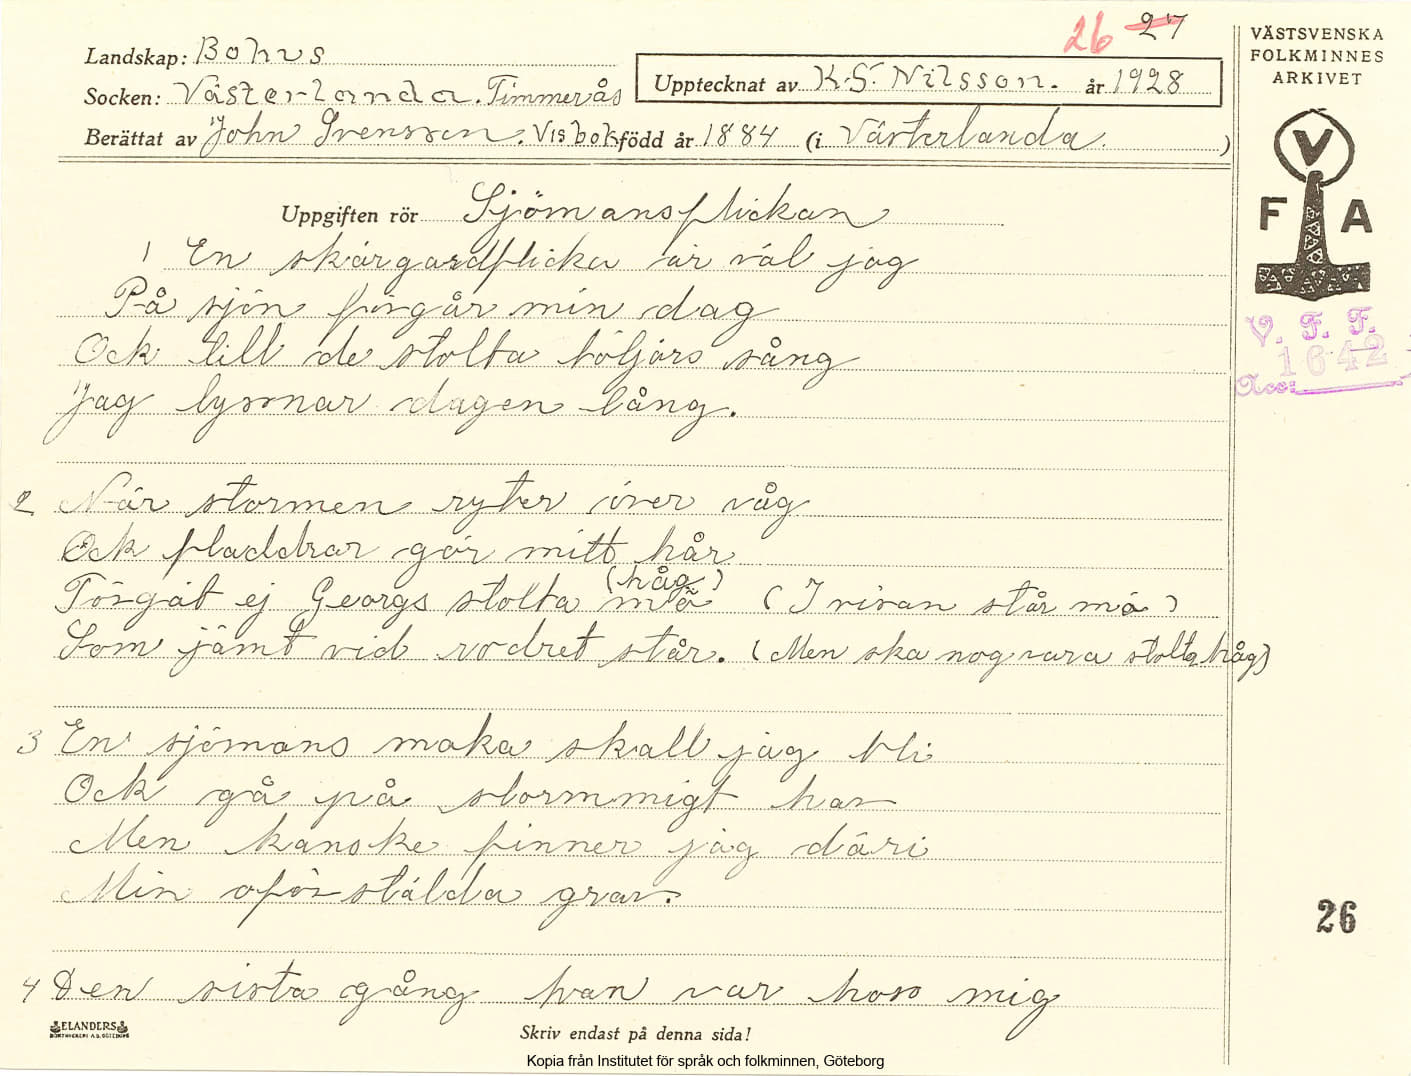 26 27
VÄSTSVENSKA
FOLKMINNES
ARKIVET
Landskap: Bohus
Socken: Västerlanda. Timmerås
Upptecknat av K.S. Nilsson. år 1928
Berättat av John Svensson. Visbok född år 1884 (i Västerlanda. )
V
F A
Uppgiften rör Sjömansflickan
1 En skärgardflicka är väl jag
På sjön förgår min dag
Ock till de stolta böljors sång
Jag lyssnar dagen lång.
V. F. F.
1642
Acc:
2 När stormen ryter över våg
Ock fladdrar gör mitt hår
(håg)
Förgät ej Georgs stolta mö (I vivan står må)
Som jämt vid rodret står. (Men ska nog vara stolta håg)
3 En sjömans maka skall jag bli
Ock gå på stormmigt hav
Men kanske finner jag däri
Min oförstälda grav.
26
4 Den sista gång han var hoss mig
ELANDERS
BOKTRYCKERI A.B. GÖTEBORG
Skriv endast på denna sida!
Kopia från Institutet för språk och folkminnen, Göteborg